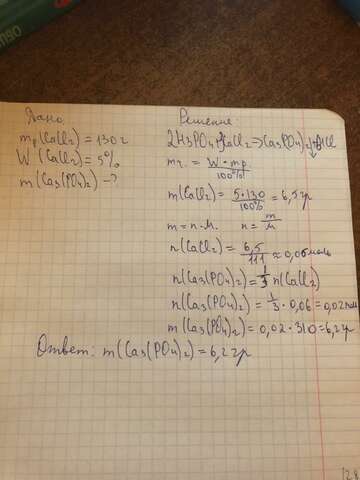 Дано
mр(CaCl2) = 130 г
W (CaCl2) = 5%
m(Ca3(PO4)2) - ?
Решение:
2H3PO4+3CaCl2=>Ca3(PO4)2↓+6HCl
mч. = W · mр / 100%
m(CaCl2) = 5·130 / 100% = 6,5 гр
m = n·M. n = m / M
n(CaCl2) = 6,5 / 111 ≈ 0,06 моль
n(Ca3(PO4)2) = 1/3 n(CaCl2)
n(Ca3(PO4)2) = 1/3 · 0,06 = 0,02 моль
m(Ca3(PO4)2) = 0,02 · 310 = 6,2 гр
Ответ: m(Ca3(PO4)2) = 6,2 гр